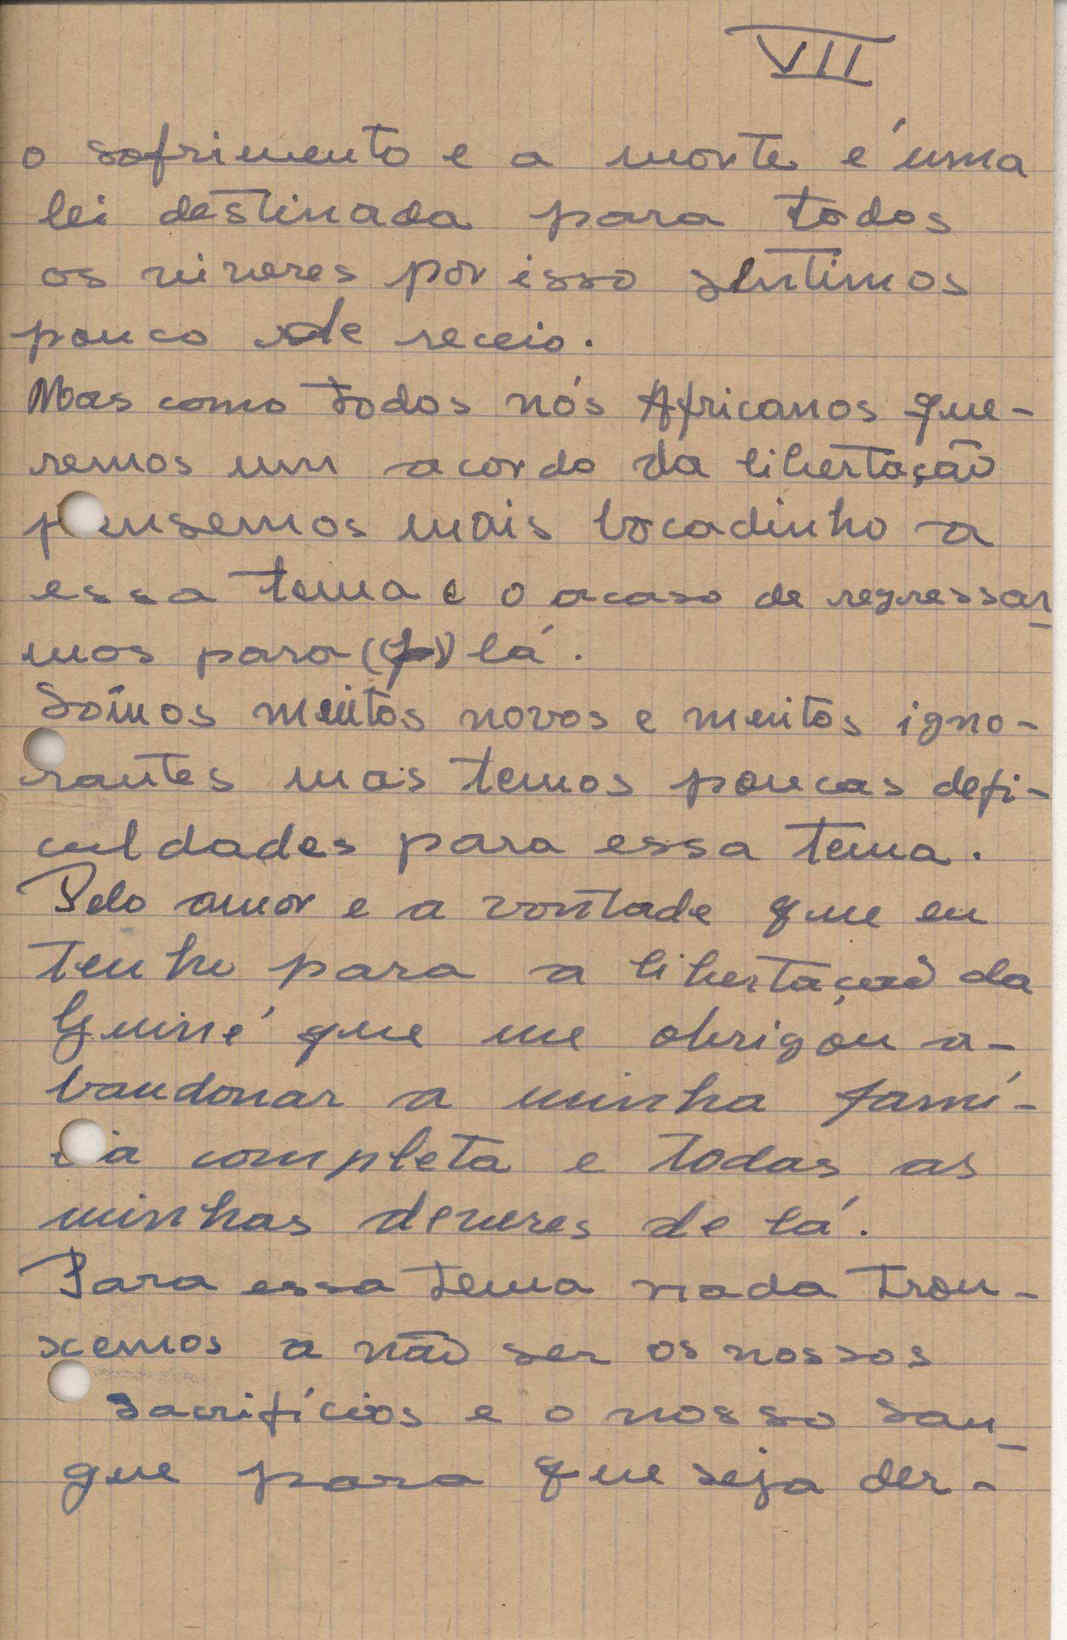 VII
o sofrimento e a morte é uma
lei destinada para todos
os viveres por isso sentimos
pouco de receio.
Mas como todos nós Africanos que-
remos um acordo da libertação
pensemos mais bocadinho a
essa tema e o acaso de regressar_
mos para (p) lá.
Sômos muitos novos e muitos igno-
rantes mas temos poucas defi-
culdades para essa tema.
Pelo amor e a vontade que eu
tenho para a libertação da
Guiné que me obrigou a-
bandonar a minha famí-
lia completa e todas as
minhas deveres de lá.
Para essa tema nada trou-
xemos a não ser os nossos
sacrifícios e o nosso san_
gue para que seja der-